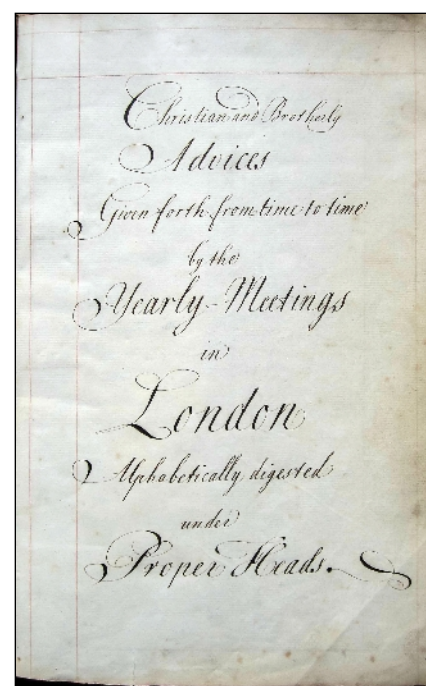 Christian and Brotherly
Advices
Given forth from time to time
by the
Yearly-Meetings
in
London
Alphabetically digested
under
Proper Heads.